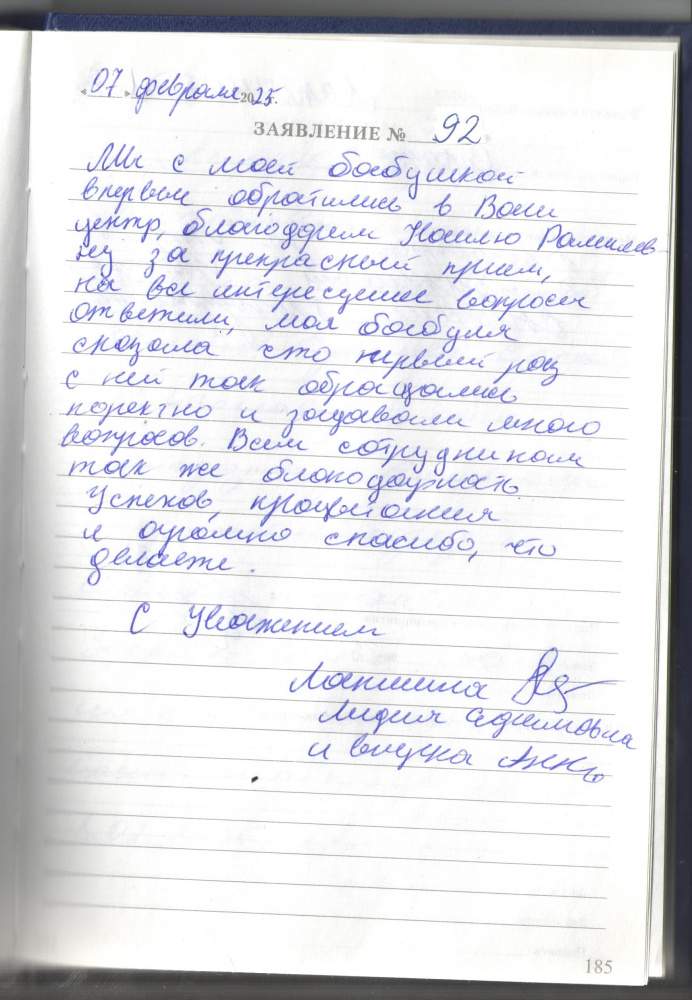 «07» февраля 2025г.
ЗАЯВЛЕНИЕ № 92
Мы с моей бабушкой
впервые обратились в Ваш
центр, благодарим Наилю Рамилев-
ну за прекрасный прием,
на все интересущие вопросы
ответили, моя бабуля
сказала что первый раз
с ней так обращались
коректно и задавали много
вопросов. Всем сотрудникам
так же благодарность
Успехов, процветания
и огромно спасибо, что
делаете.
С Уважением
Лапшина
Лидия
и внучка Анна
185